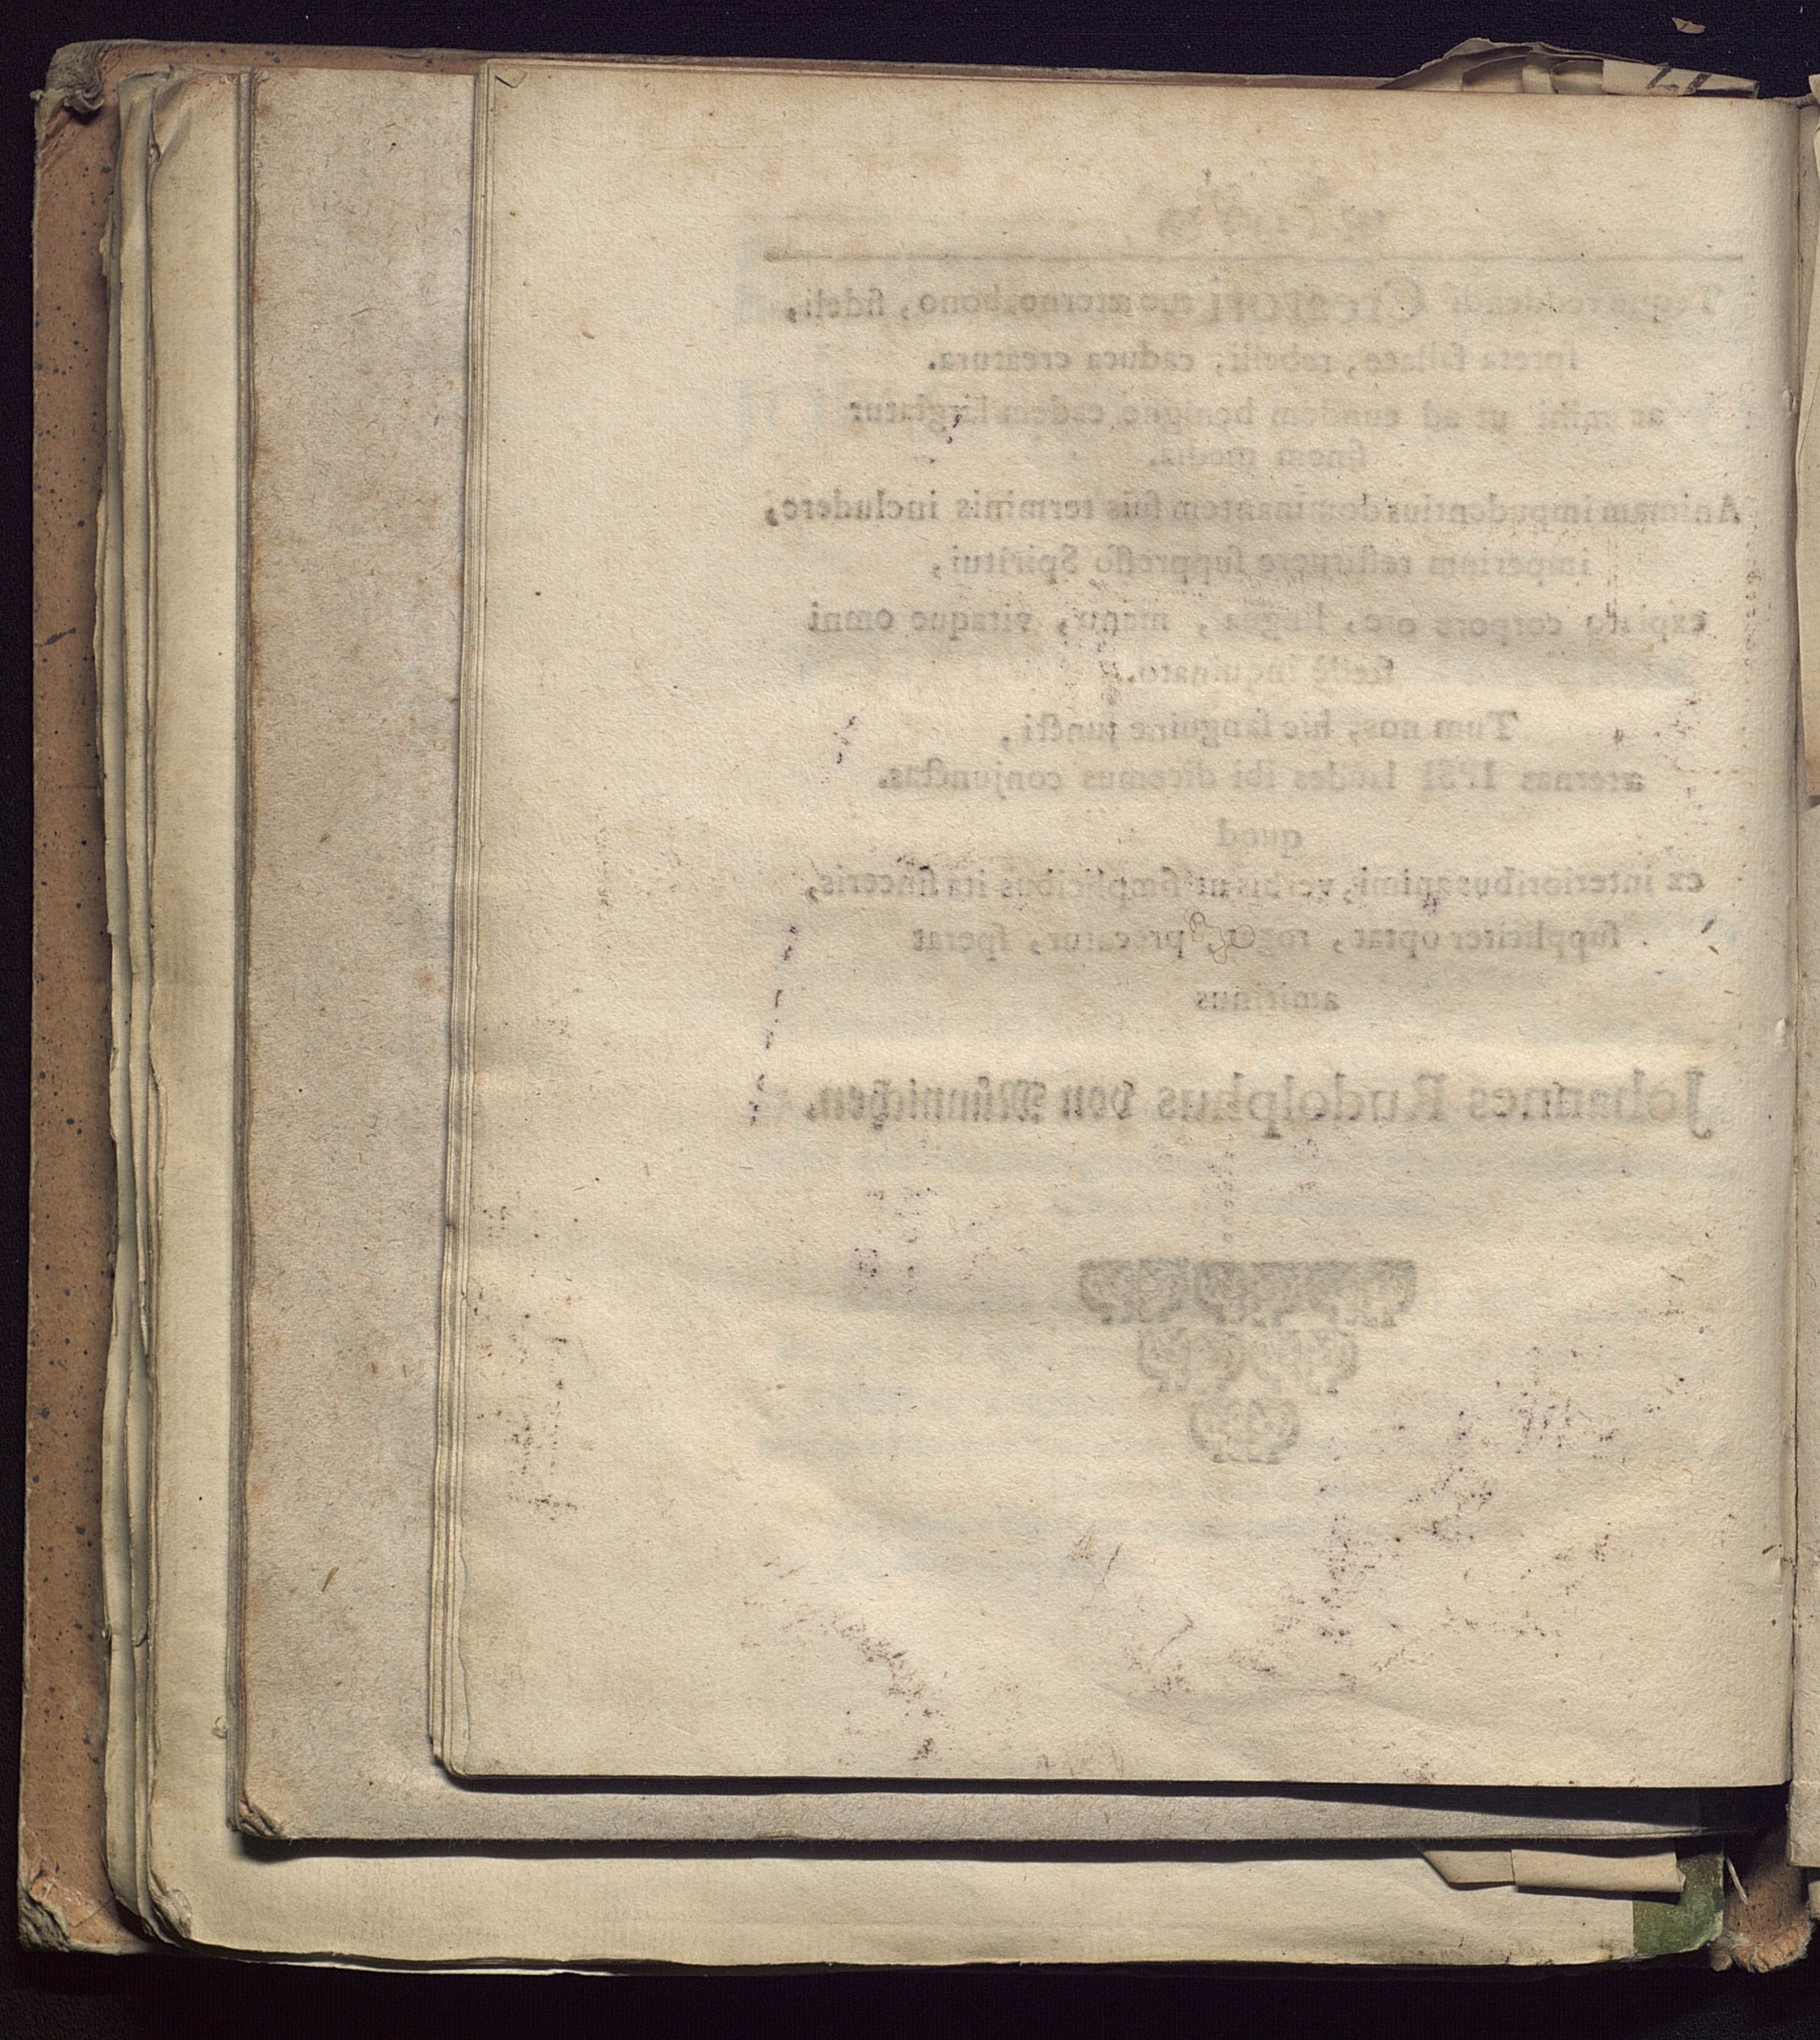 Creatori suo æterno, bono, fideli,
spreta fallace, rebelli, caduca creatura.
ac mihi ut ad eundem benigne eadem largiatur
finem media.
Animam impudentius dominantem suis terminis includere,
imperium restituere suppresso Spiritui,
corpore ore, lingua, manu, vitaque omni
inquinato.
Tum nos, hic sanguine juncti,
æternas laudes ibi dicemus conjunctas.
quod
ex interioribus animi, verbis ut simplicibus ita sinceris,
suppliciter optat, rogat, precatur, sperat
amitinus
Johannes Rudolphus von Münnichen.